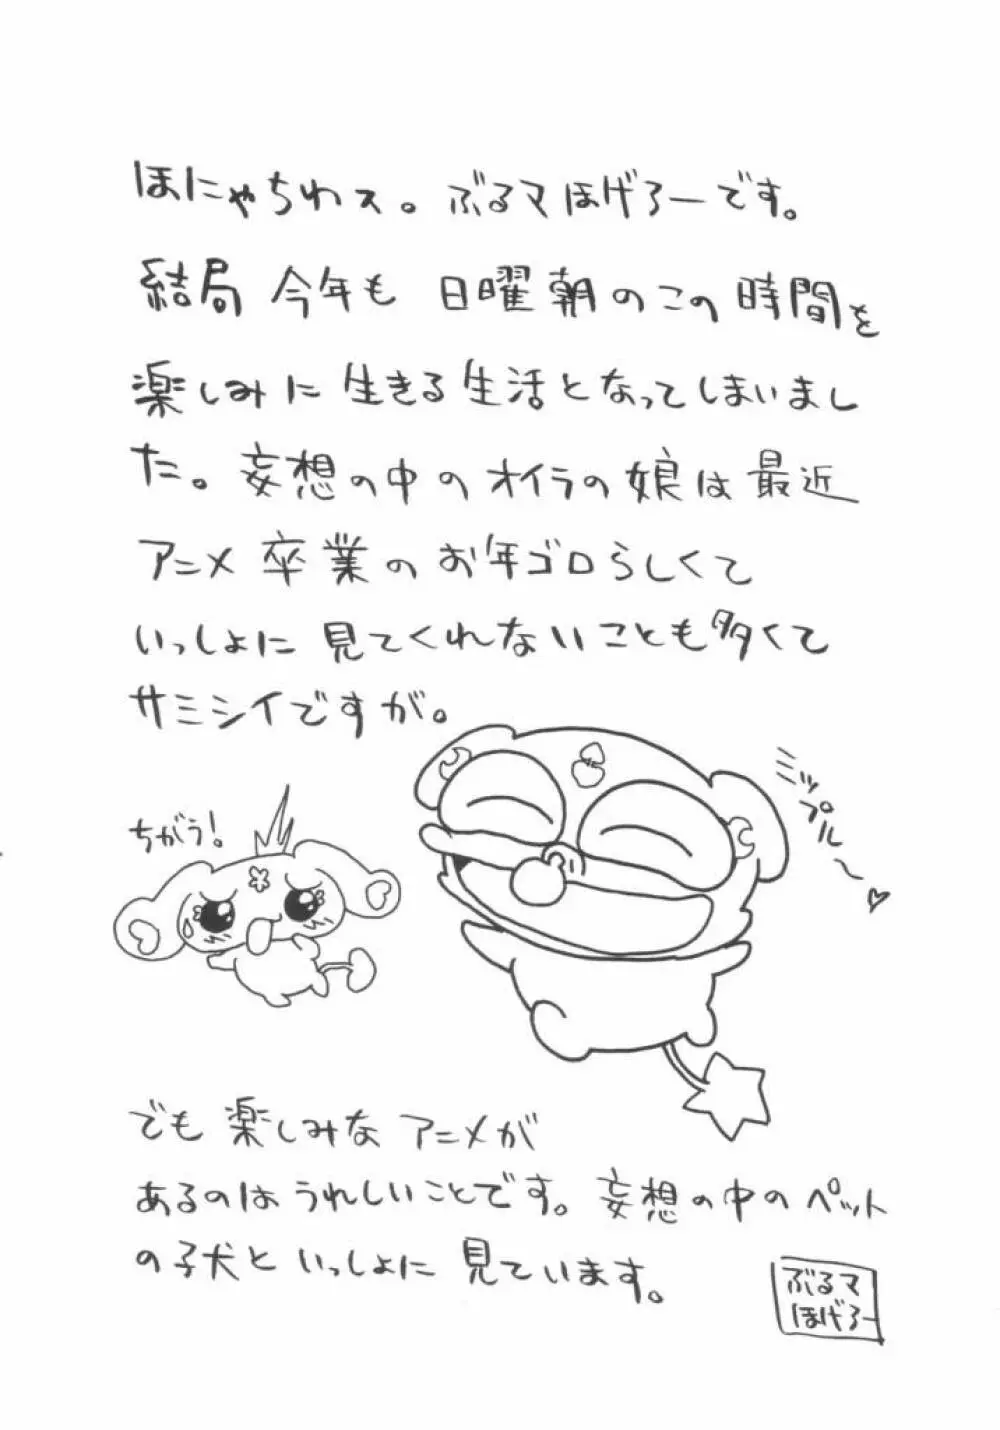 ほにゃちわス。ぶるマほげろーです。
結局 今年も 日曜朝のこの時間を
楽しみに生きる生活となってしまいまし
た。妄想の中のオイラの娘は最近
アニメ卒業のお年ゴロらしくて
いっしょに見てくれないことも多くて
サミシイですが。
ちがう！
ミップルー♡
でも楽しみなアニメが
あるのはうれしいことです。妄想の中のペット
の子犬といっしょに見ています。
ぶるマ
ほげろー